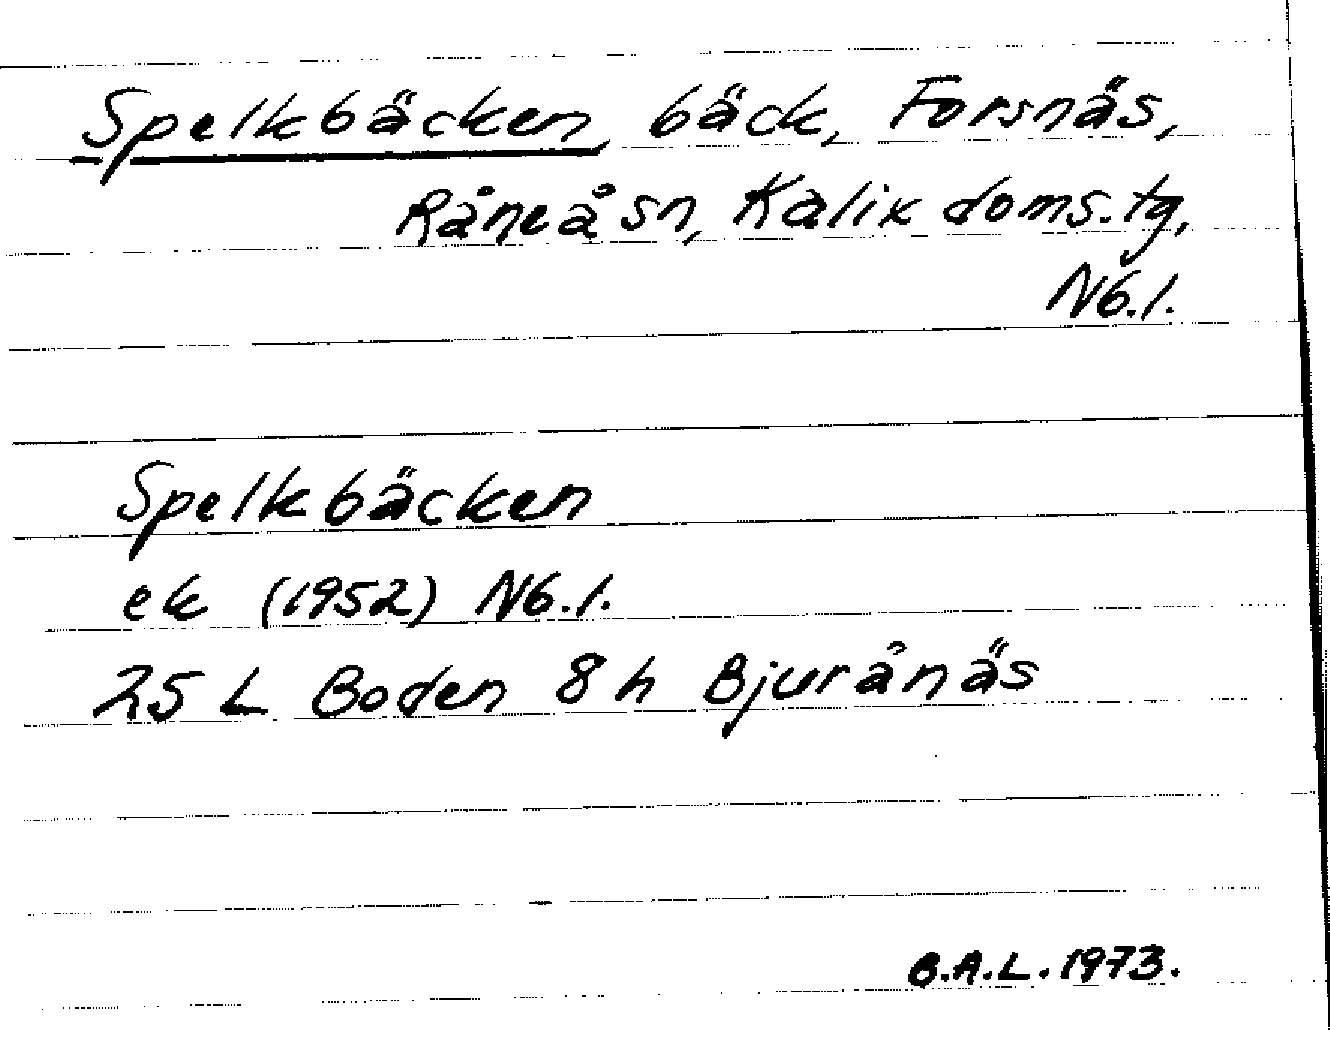 Spelkbäcken, bäck, Forsnäs,
Råneå sn, Kalix doms.tg,
Nb.l.
Spelkbäcken
ek (1952) Nb.l.
25 L Boden 8 h Bjurånäs
B.A.L. 1973.